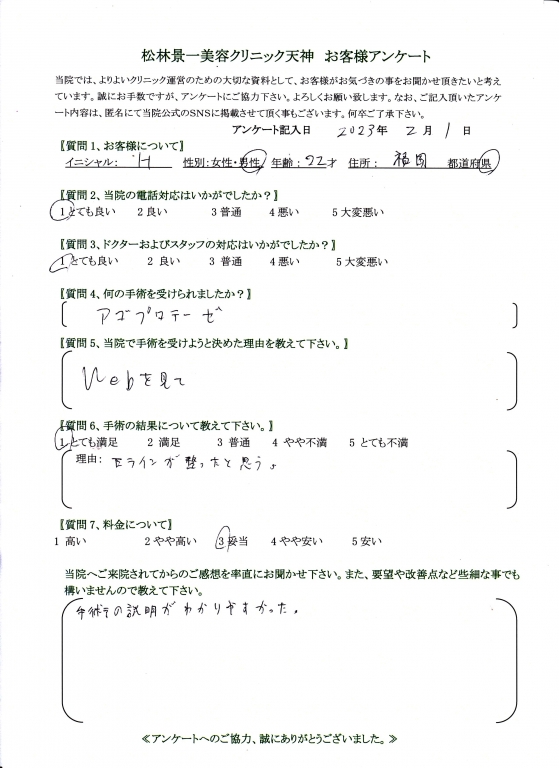 松林景一美容クリニック天神　お客様アンケート
当院では、よりよいクリニック運営のための大切な資料として、お客様がお気づきの事をお聞かせ頂きたいと考え
ています。誠にお手数ですが、アンケートにご協力下さい。よろしくお願い致します。なお、ご記入頂いたアンケ
ート内容は、匿名にて当院公式のSNSに掲載させて頂く事もございます。何卒ご了承下さい。
アンケート記入日　2023年　2月　1日
【質問1、お客様について】
イニシャル：　H　性別：女性・男性　年齢：22才　住所：　福岡　都道府県
【質問2、当院の電話対応はいかがでしたか？】
1とても良い　2良い　3普通　4悪い　5大変悪い
【質問3、ドクターおよびスタッフの対応はいかがでしたか？】
1とても良い　2 良い　3 普通　4悪い　5大変悪い
【質問4、何の手術を受けられましたか？】
アゴプロテーゼ
【質問5、当院で手術を受けようと決めた理由を教えて下さい。】
Webを見て
【質問6、手術の結果について教えて下さい。】
1とても満足　2 満足　3 普通　4 やや不満　5 とても不満
理由：Eラインが整ったと思う。
【質問7、料金について】
1 高い　2やや高い　3妥当　4やや安い　5安い
当院へご来院されてからのご感想を率直にお聞かせ下さい。また、要望や改善点など些細な事でも
構いませんので教えて下さい。
の説明がわかりやすかった。
≪アンケートへのご協力、誠にありがとうございました。≫